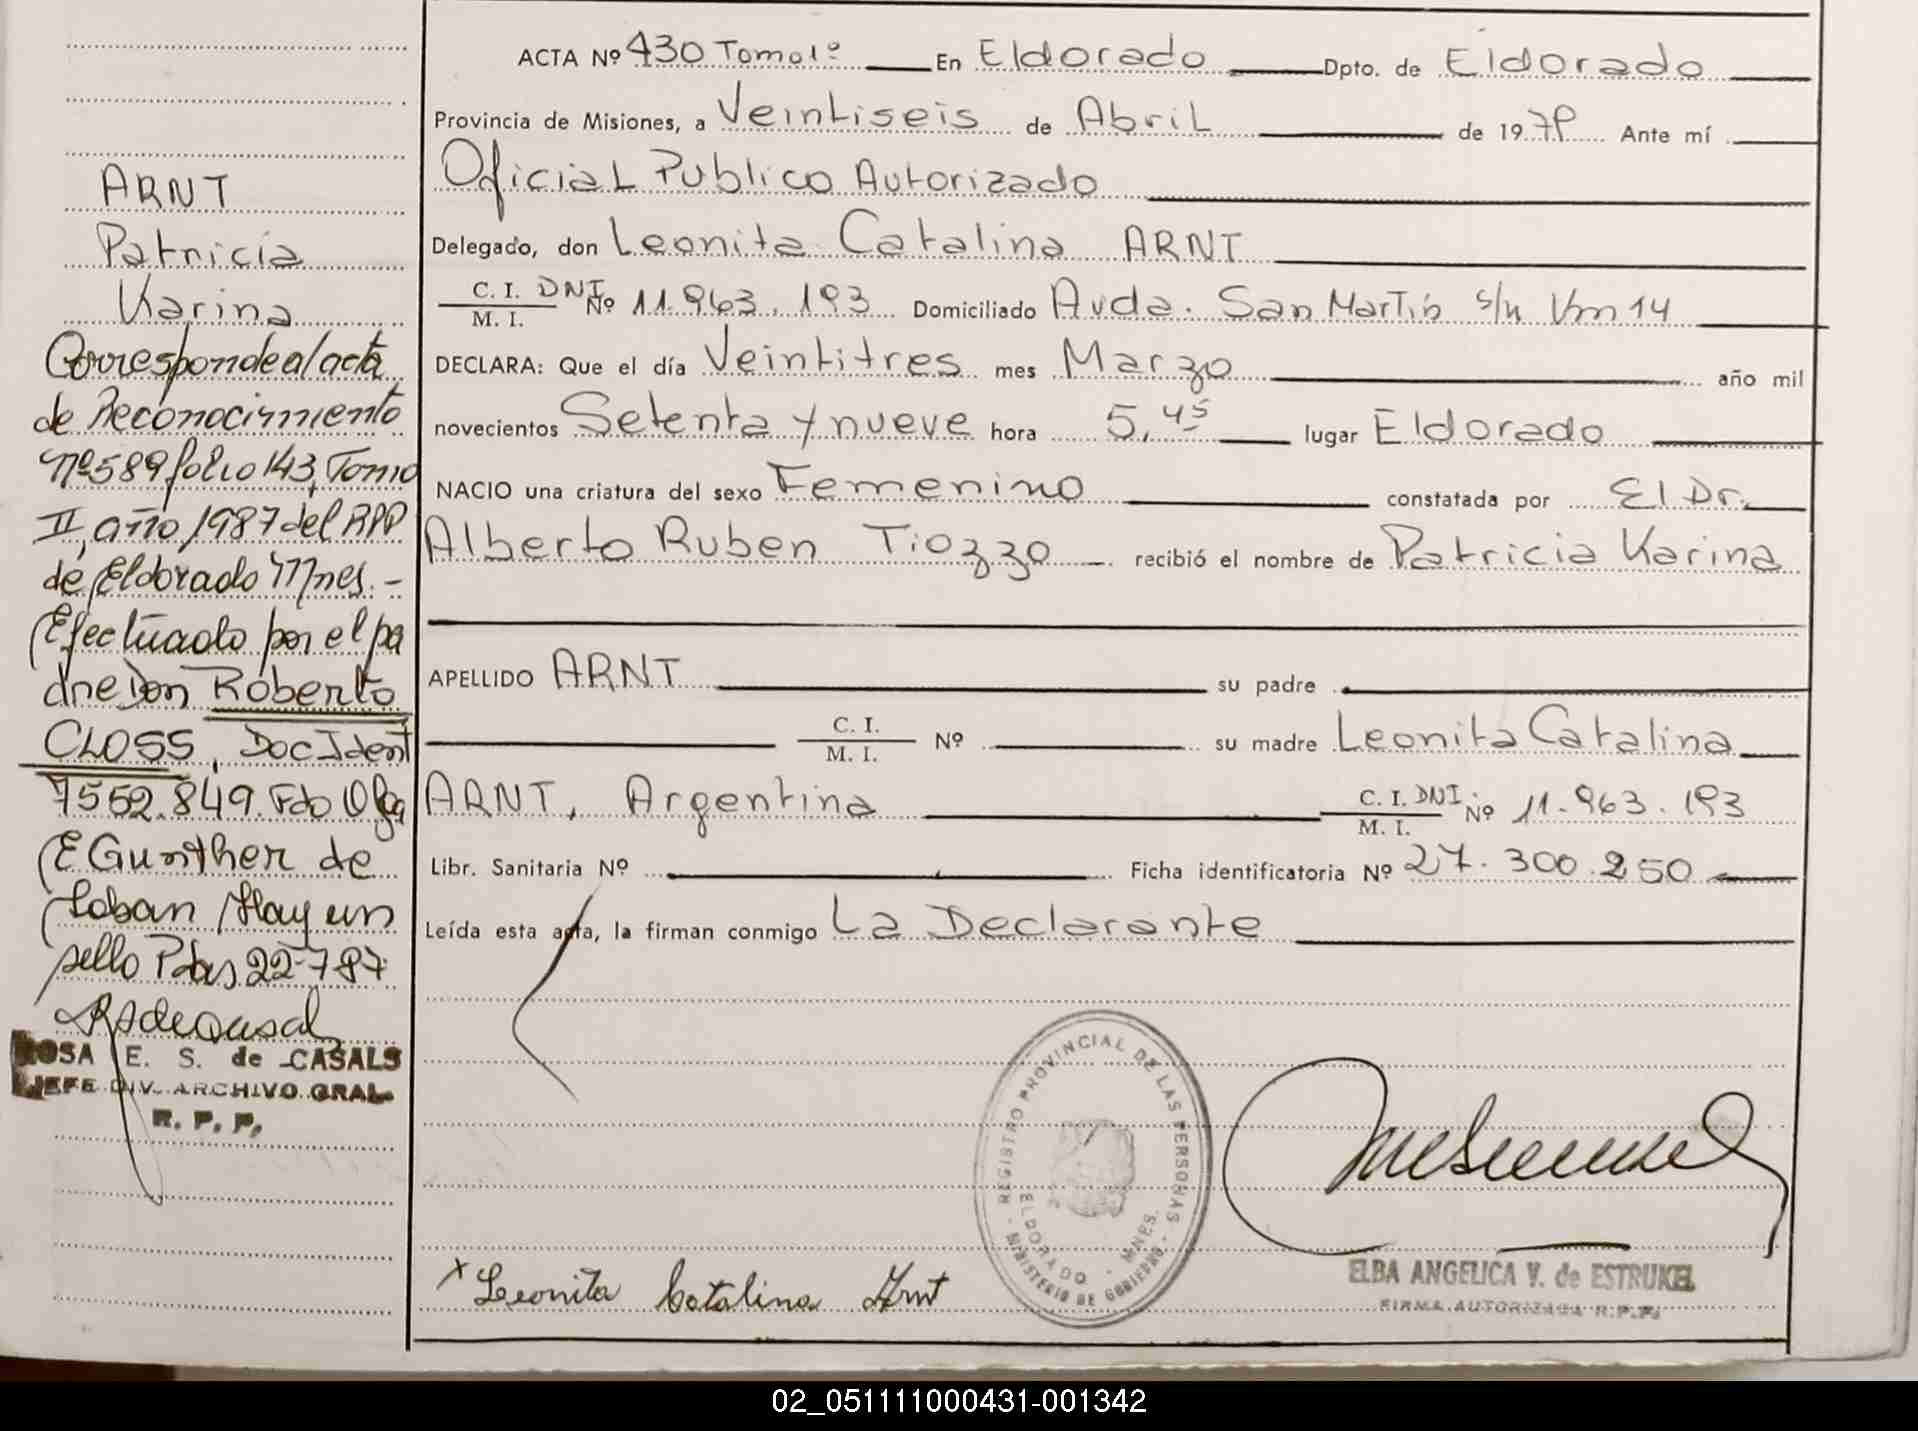 ARNT
Patricia
Karina
Corresponde al acta
de Reconocimiento
Nº 589 folio 143, Tomo
II, año 1987 del RPP
de Eldorado Mnes. -
Efectuado por el pa
dre Don Roberto
CLOSS, Doc Ident
7552.849. Fdo Olga
E Gunther de
Loban Hay un
sello Pdas 22-7-87
ROSA E. S. de CASALS
JEFE DIV. ARCHIVO GRAL.
R. P. P.
ACTA Nº 430 Tomo 1º En Eldorado Dpto. de Eldorado
Provincia de Misiones, a Veintiseis de Abril de 1979 Ante mí
Oficial Publico Autorizado
Delegado, don Leonita Catalina ARNT
C. I. DNI Nº 11.963.193 Domiciliado Avda. San Martin s/n Km 14
M. I.
DECLARA: Que el día Veintitres mes Marzo año mil
novecientos Setenta y nueve hora 5,45 lugar Eldorado
NACIO una criatura del sexo Femenino constatada por El Dr.
Alberto Ruben Tiozzo recibió el nombre de Patricia Karina
APELLIDO ARNT su padre
C. I. Nº su madre Leonita Catalina
M. I.
ARNT, Argentina C. I. DNI Nº 11.963.193
M. I.
Libr. Sanitaria Nº Ficha identificatoria Nº 27.300.250
Leída esta acta, la firman conmigo La Declarante
REGISTRO PROVINCIAL DE LAS PERSONAS
ELDORADO - MNES.
MINISTERIO DE GOBIERNO
x Leonita Catalina Arnt
ELBA ANGELICA V. de ESTRUKEL
FIRMA AUTORIZADA R.P.P.
02_051111000431-001342